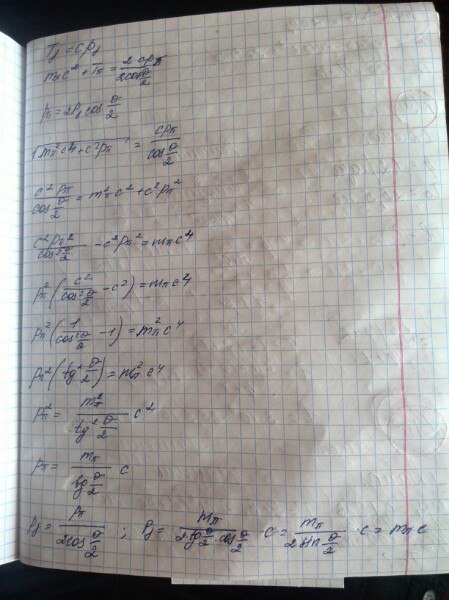 Tγ = cpγ
mπc² + Tπ = 2cpπ / 2cos θ/2
pπ = 2pγ cos θ/2
√(mπ²c⁴ + c²pπ²) = cpπ / cos θ/2
c²pπ / cos θ/2 = mπ²c² + c²pπ²
c²pπ² / cos² θ/2 - c²pπ² = mπc⁴
pπ² (c² / cos² θ/2 - c²) = mπc⁴
pπ² (1 / cos² θ/2 - 1) = mπ²c⁴
pπ² (tg² θ/2) = mπ²c⁴
pπ² = mπ² / tg² θ/2 c²
pπ = mπ / tg θ/2 c
pγ = pπ / 2cos θ/2 ; pγ = mπ / 2 tg θ/2 · cos θ/2 c = mπ / 2 sin θ/2 · c = mπc